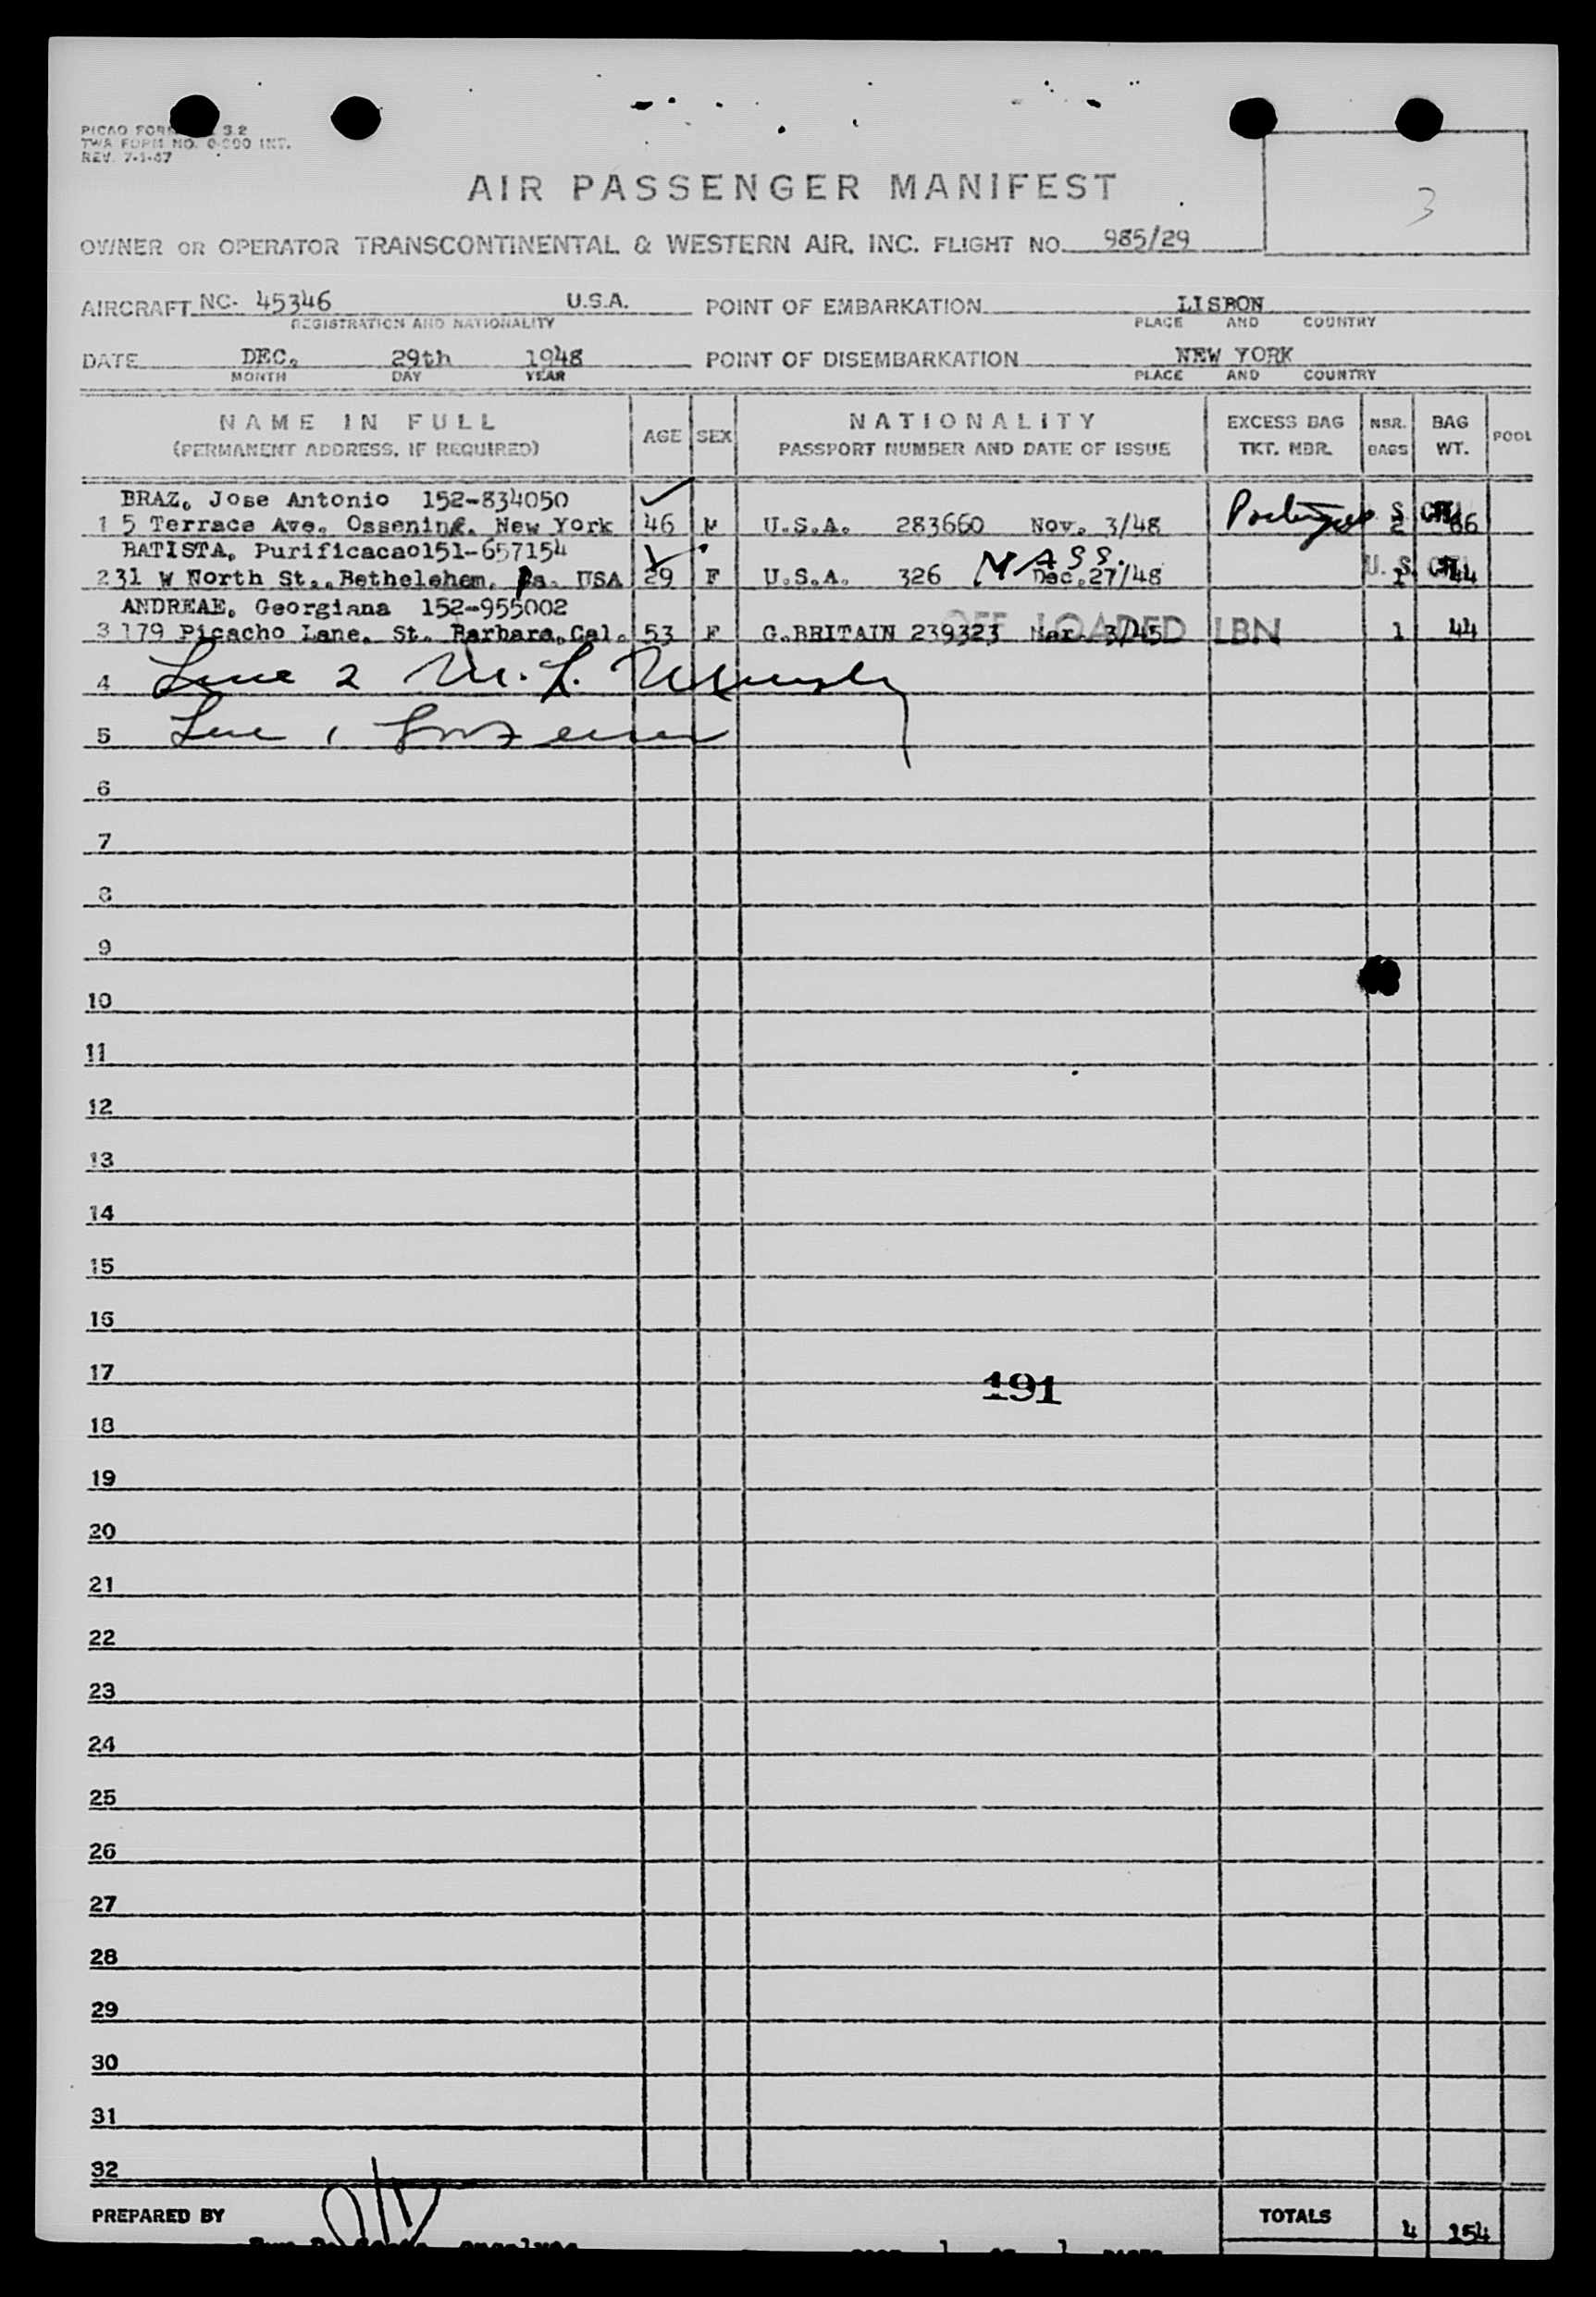 PICAO FORM S.2
TWA FORM NO. INT.
REV. 7-1-47
AIR PASSENGER MANIFEST
3
OWNER OR OPERATOR TRANSCONTINENTAL & WESTERN AIR, INC. FLIGHT NO. 985/29
AIRCRAFT NC- 45346 U.S.A. POINT OF EMBARKATION LISBON
REGISTRATION AND NATIONALITY PLACE AND COUNTRY
DATE DEC. 29th 1948 POINT OF DISEMBARKATION NEW YORK
MONTH DAY YEAR PLACE AND COUNTRY
NAME IN FULL AGE SEX NATIONALITY EXCESS BAG NBR. BAG POOL
(PERMANENT ADDRESS, IF REQUIRED) PASSPORT NUMBER AND DATE OF ISSUE TKT. NBR. BAGS WT.
BRAZ, Jose Antonio 152-834050
1 5 Terrace Ave. Ossening. New York 46 M U.S.A. 283660 Nov. 3/48 2 66
BATISTA, Purificacao151-657154 MASS.
2 31 W North St., Bethelehem, Pa. USA 29 F U.S.A. 326 Dec.27/48 U. S. 1 44
ANDREAE, Georgiana 152-955002
3 179 Picacho Lane. St. Barbara, Cal. 53 F G.BRITAIN 239323 Mar. 3/45 OFF LOADED LBN 1 44
4 Line 2 M. L.
5 Line 1
6
7
8
9
10
11
12
13
14
15
16
17
191
18
19
20
21
22
23
24
25
26
27
28
29
30
31
32
PREPARED BY TOTALS 4 154